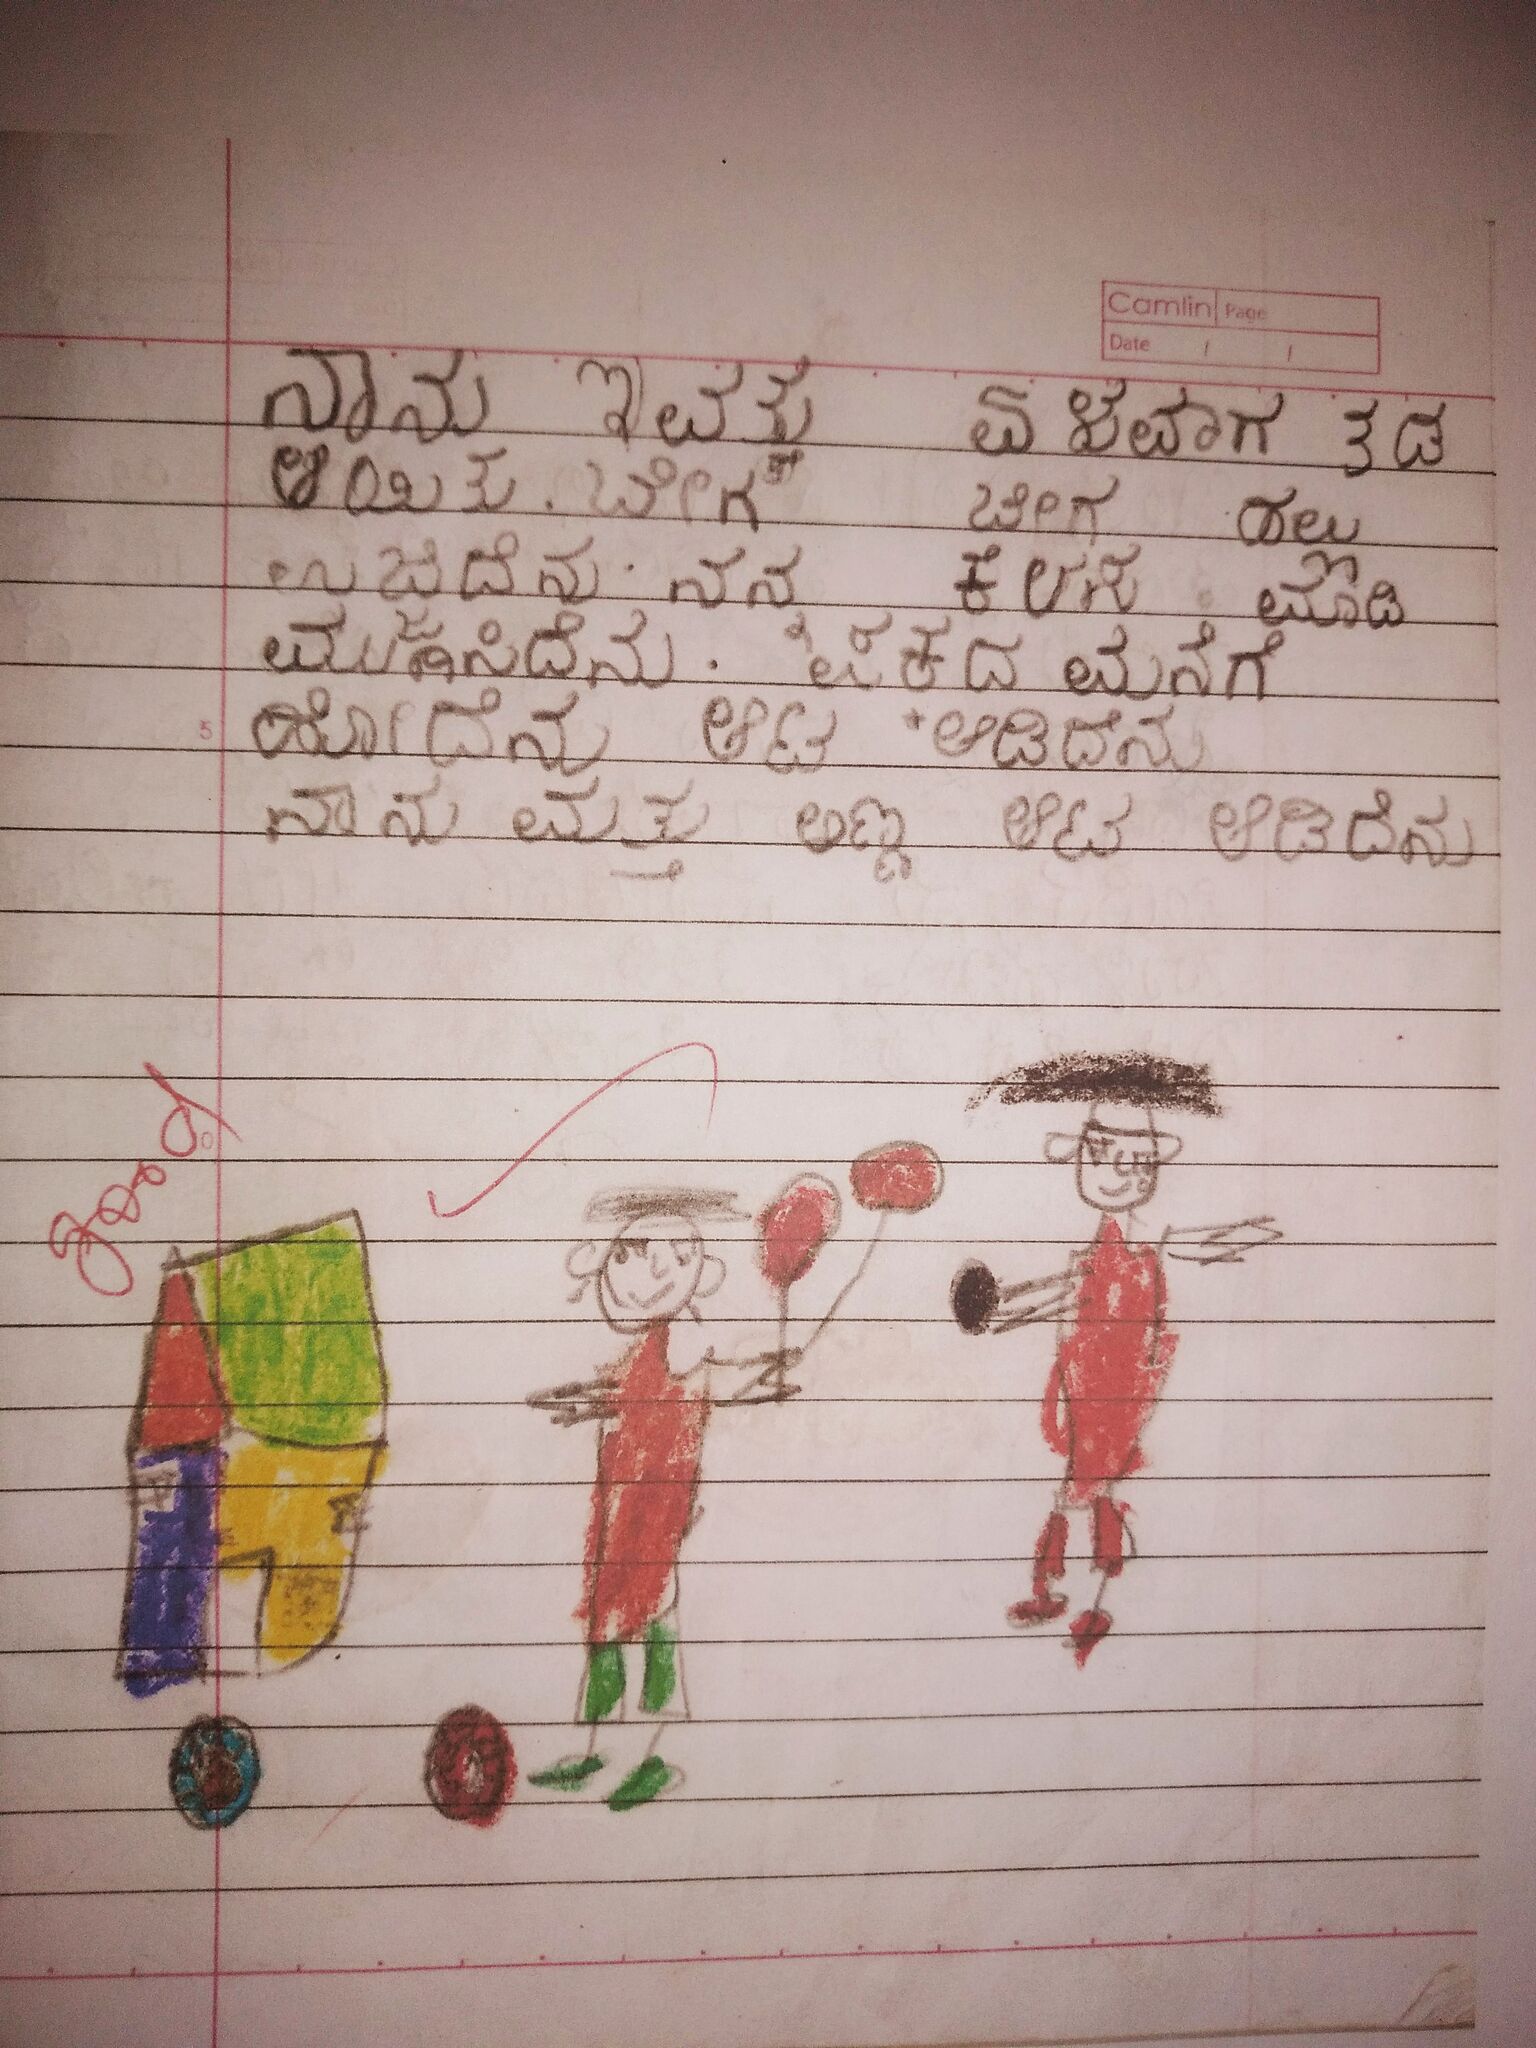 Camlin Page
Date / /
ನಾನು ಇವತ್ತು ಏಳುವಾಗ ತಡ
ಆಯಿತು. ಬೇಗ ಬೇಗ ಹಲು
ಉಜಿದೆನು. ನನ್ನ ಕೆಲಸ ಮಾಡಿ
ಮುಗಿಸಿದೆನು. ಪಕ್ಕದ ಮನೆಗೆ
5 ಹೋದೆನು ಆಟ ಆಡಿದೆನು
ನಾನು ಮತ್ತು ಅಣ್ಣ ಆಟ ಆಡಿದೆನು
Good